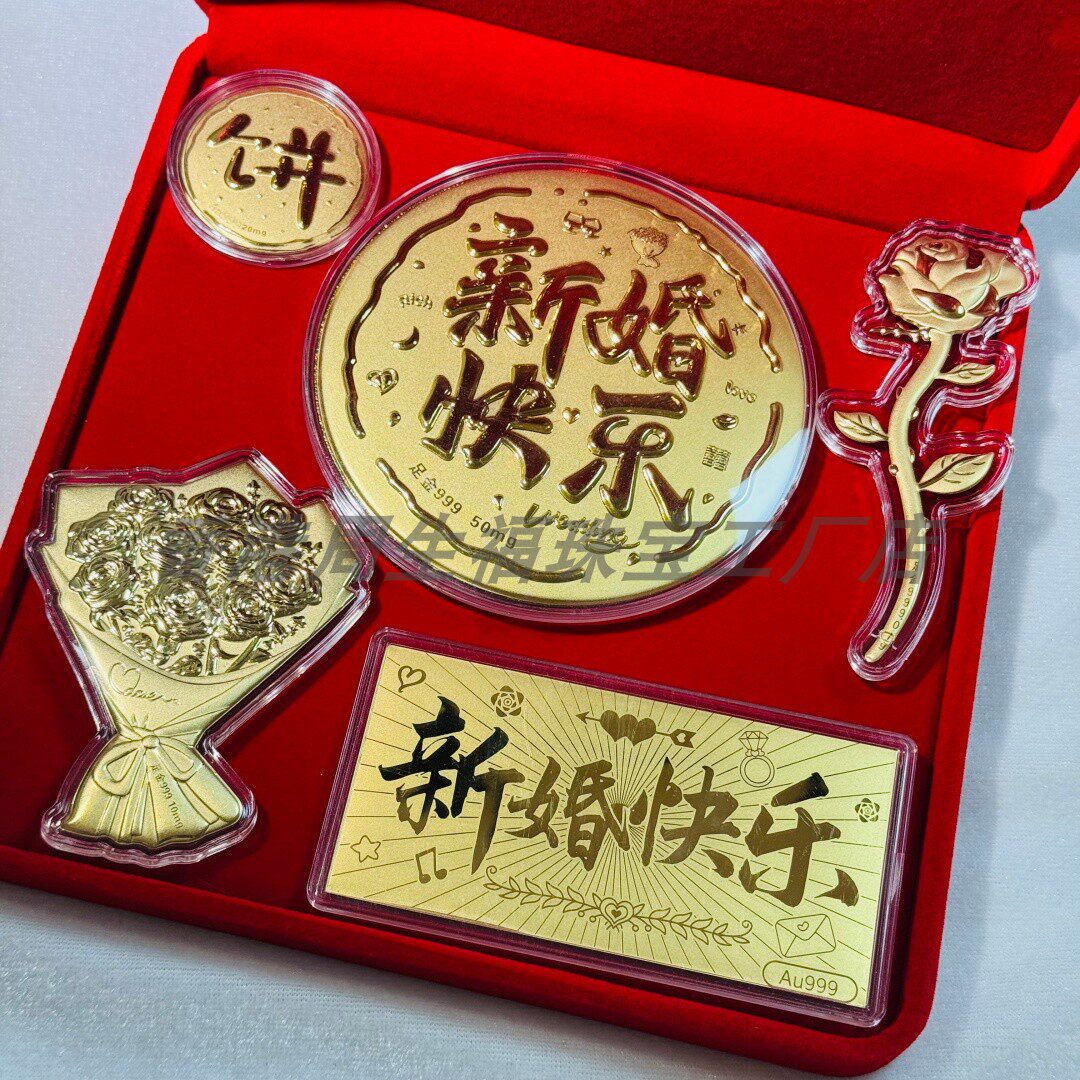 饼
20mg
新婚
快乐
Rich
love
囍
足金999 50mg
Wedding
足金999 10mg
新婚快乐
Au999
金福珠宝工厂店